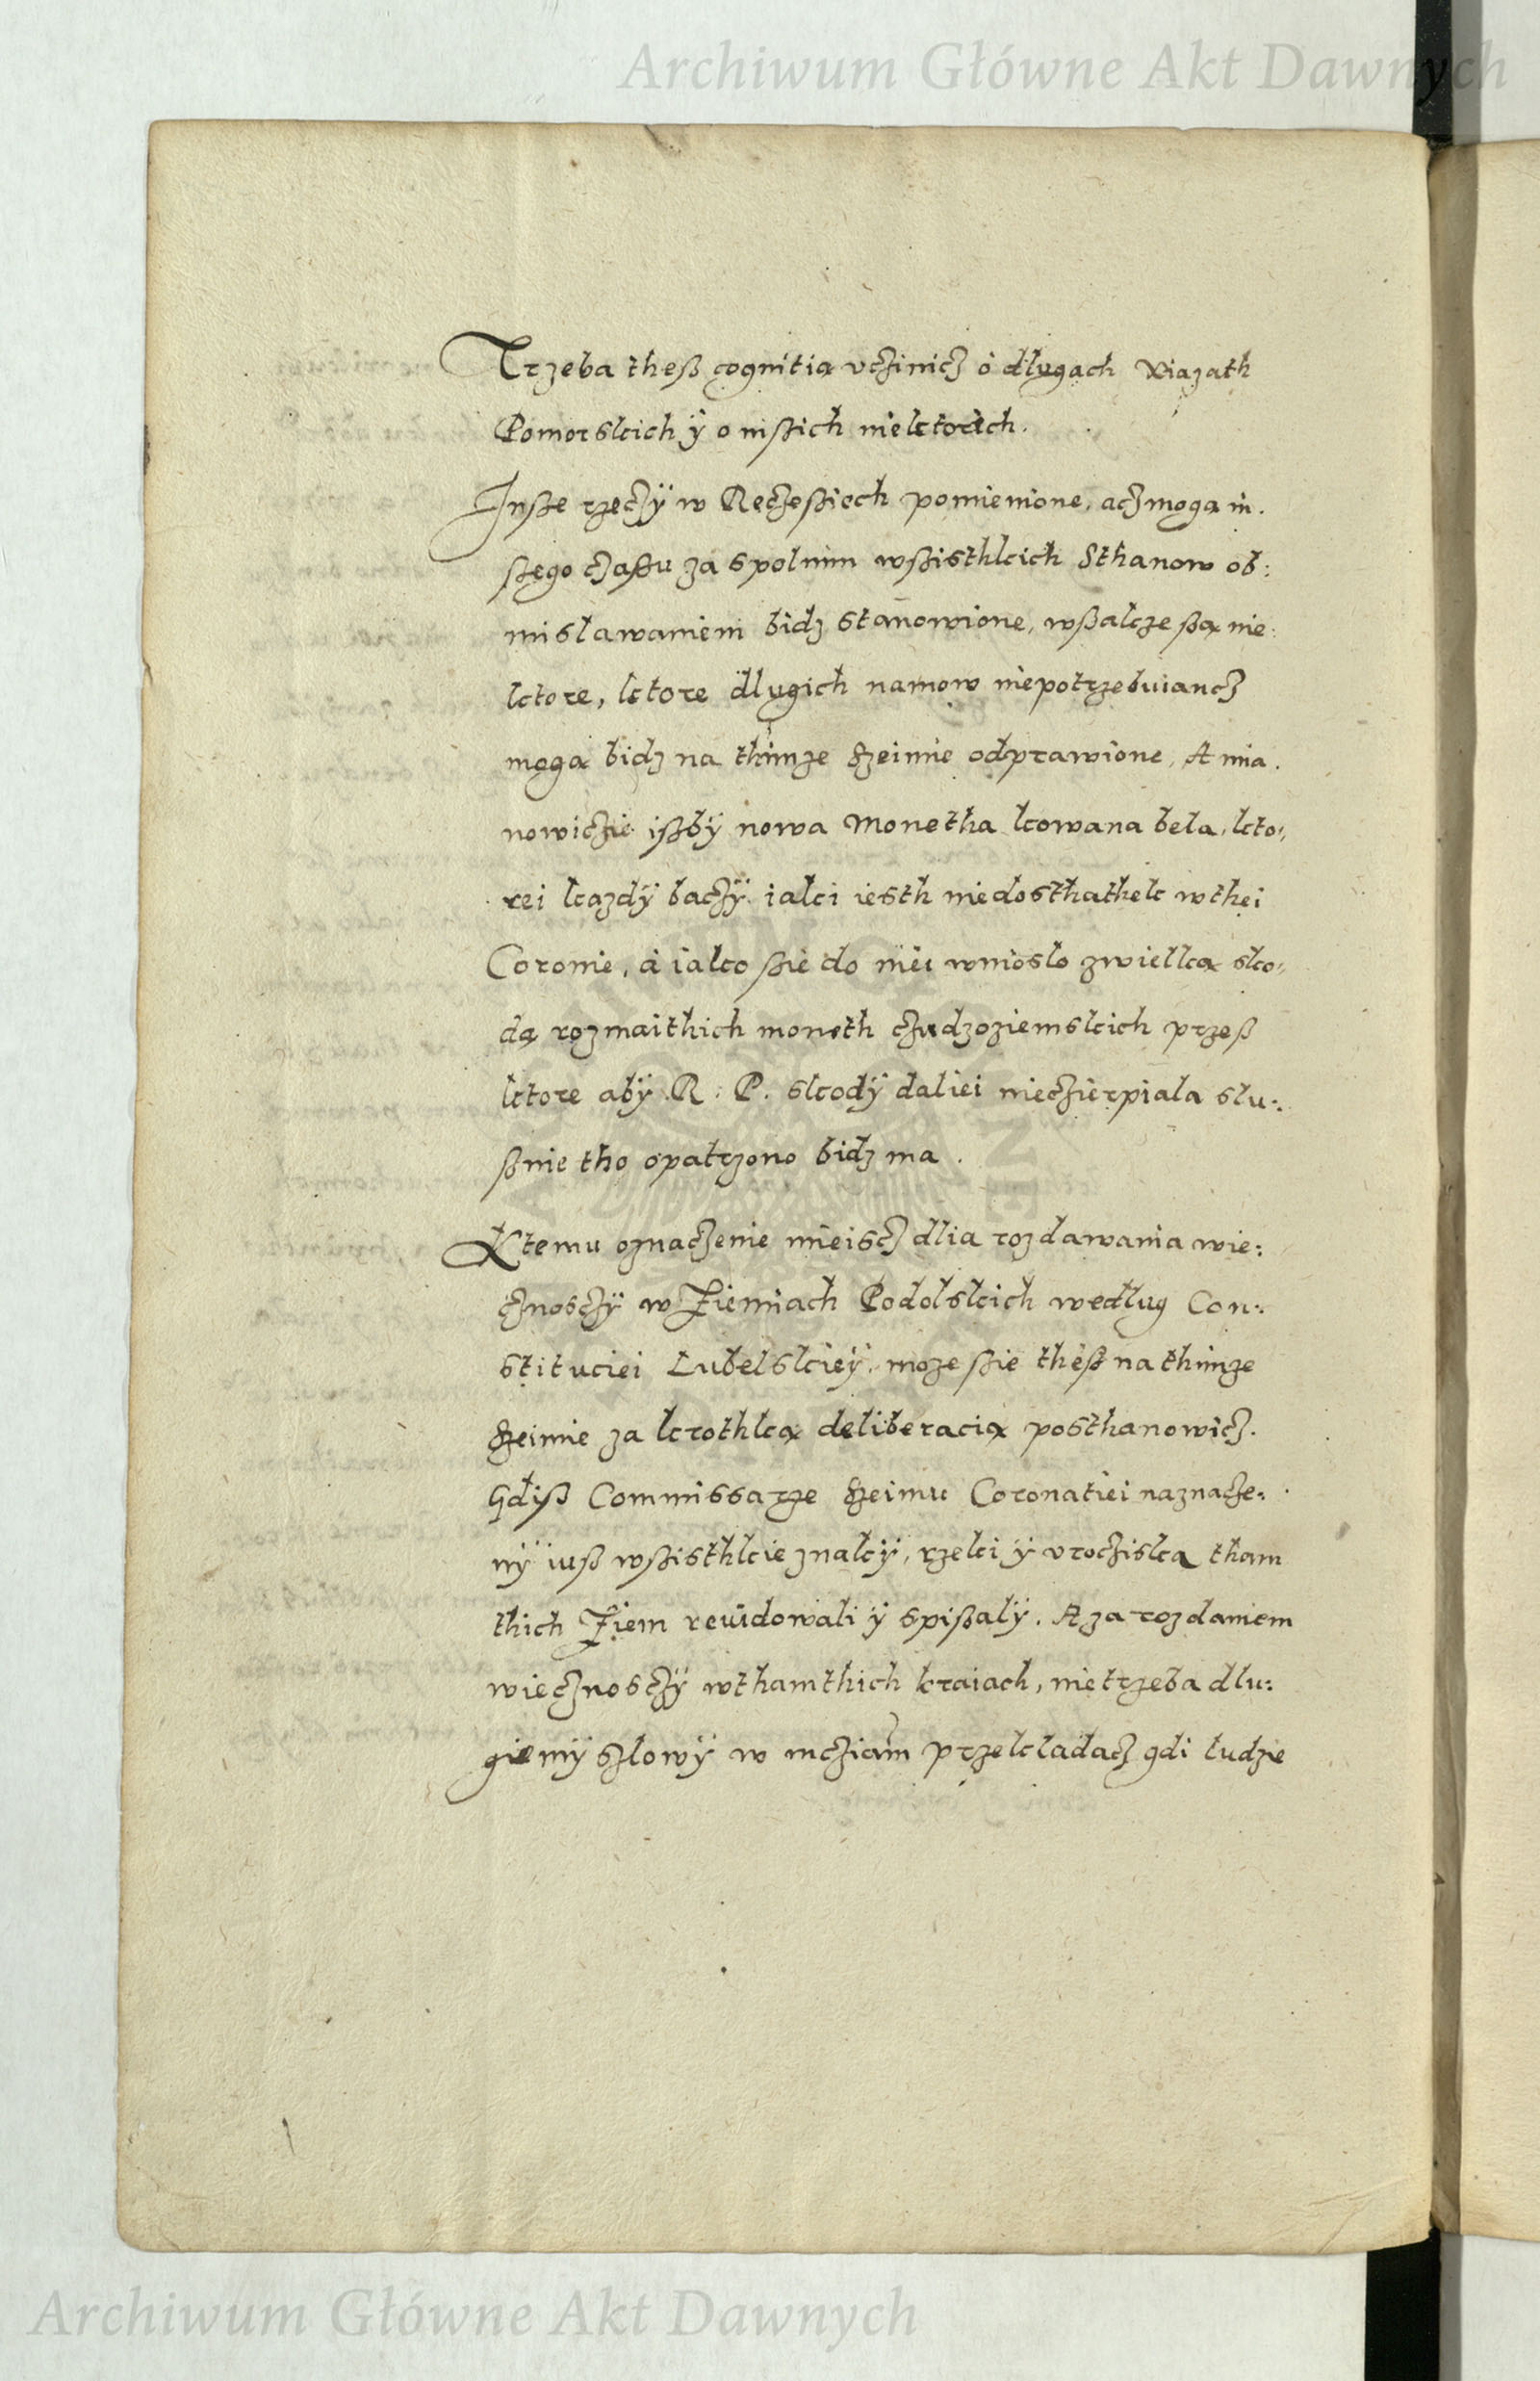 Archiwum Główne Akt Dawnych
Trzeba theß cognitią vcżinicż o długach Xiazath
Pomorskich ÿ o inßich niektorich.
Inße rzecżÿ w Recżeßiech pomienione, acż mogą in.
ßego cżaßu za spolnim wßisthkich Sthanow ob:
mislawaniem bidz stanowione, wßakze ßą nie:
ktore, ktore dlugich namow niepotrzebuiancż
mogą bidz na thimze Szeimie odprawione, A mia.
nowicżie ißbÿ nowa Monetha kowana bela, kto:
rei kazdÿ bacżÿ iaki iesth niedosthathek w thei
Coronie, a iako ßie do niei wnioslo z wielką sko:
dą rozmaithich moneth cżudzoziemskich przeß
ktore abÿ R. P. skodÿ daliei niecżierpiala slu:
ßnie tho opatrzono bidz ma.
Ktemu oznacżenie mieiscż dlia rozdawania wie:
cżnoscżÿ w Ziemiach Podolskich według Con:
stituciei Lubelskieÿ, moze ßie theß na thimze
Szeimie za krothką deliberacią posthanowicż.
Gdiß Commissarze Szeimu Coronatiei naznacże:
nÿ iuß wßisthkie znakÿ, rzeki ÿ vrocżiska tham
thich Ziem reuidowali ÿ spißalÿ. A za rozdaniem
wiecżnoscżÿ w thamthich kraiach, nie trzeba dlu:
giemÿ szlowÿ w mcżiam przekladacż gdi ludzie
Archiwum Główne Akt Dawnych